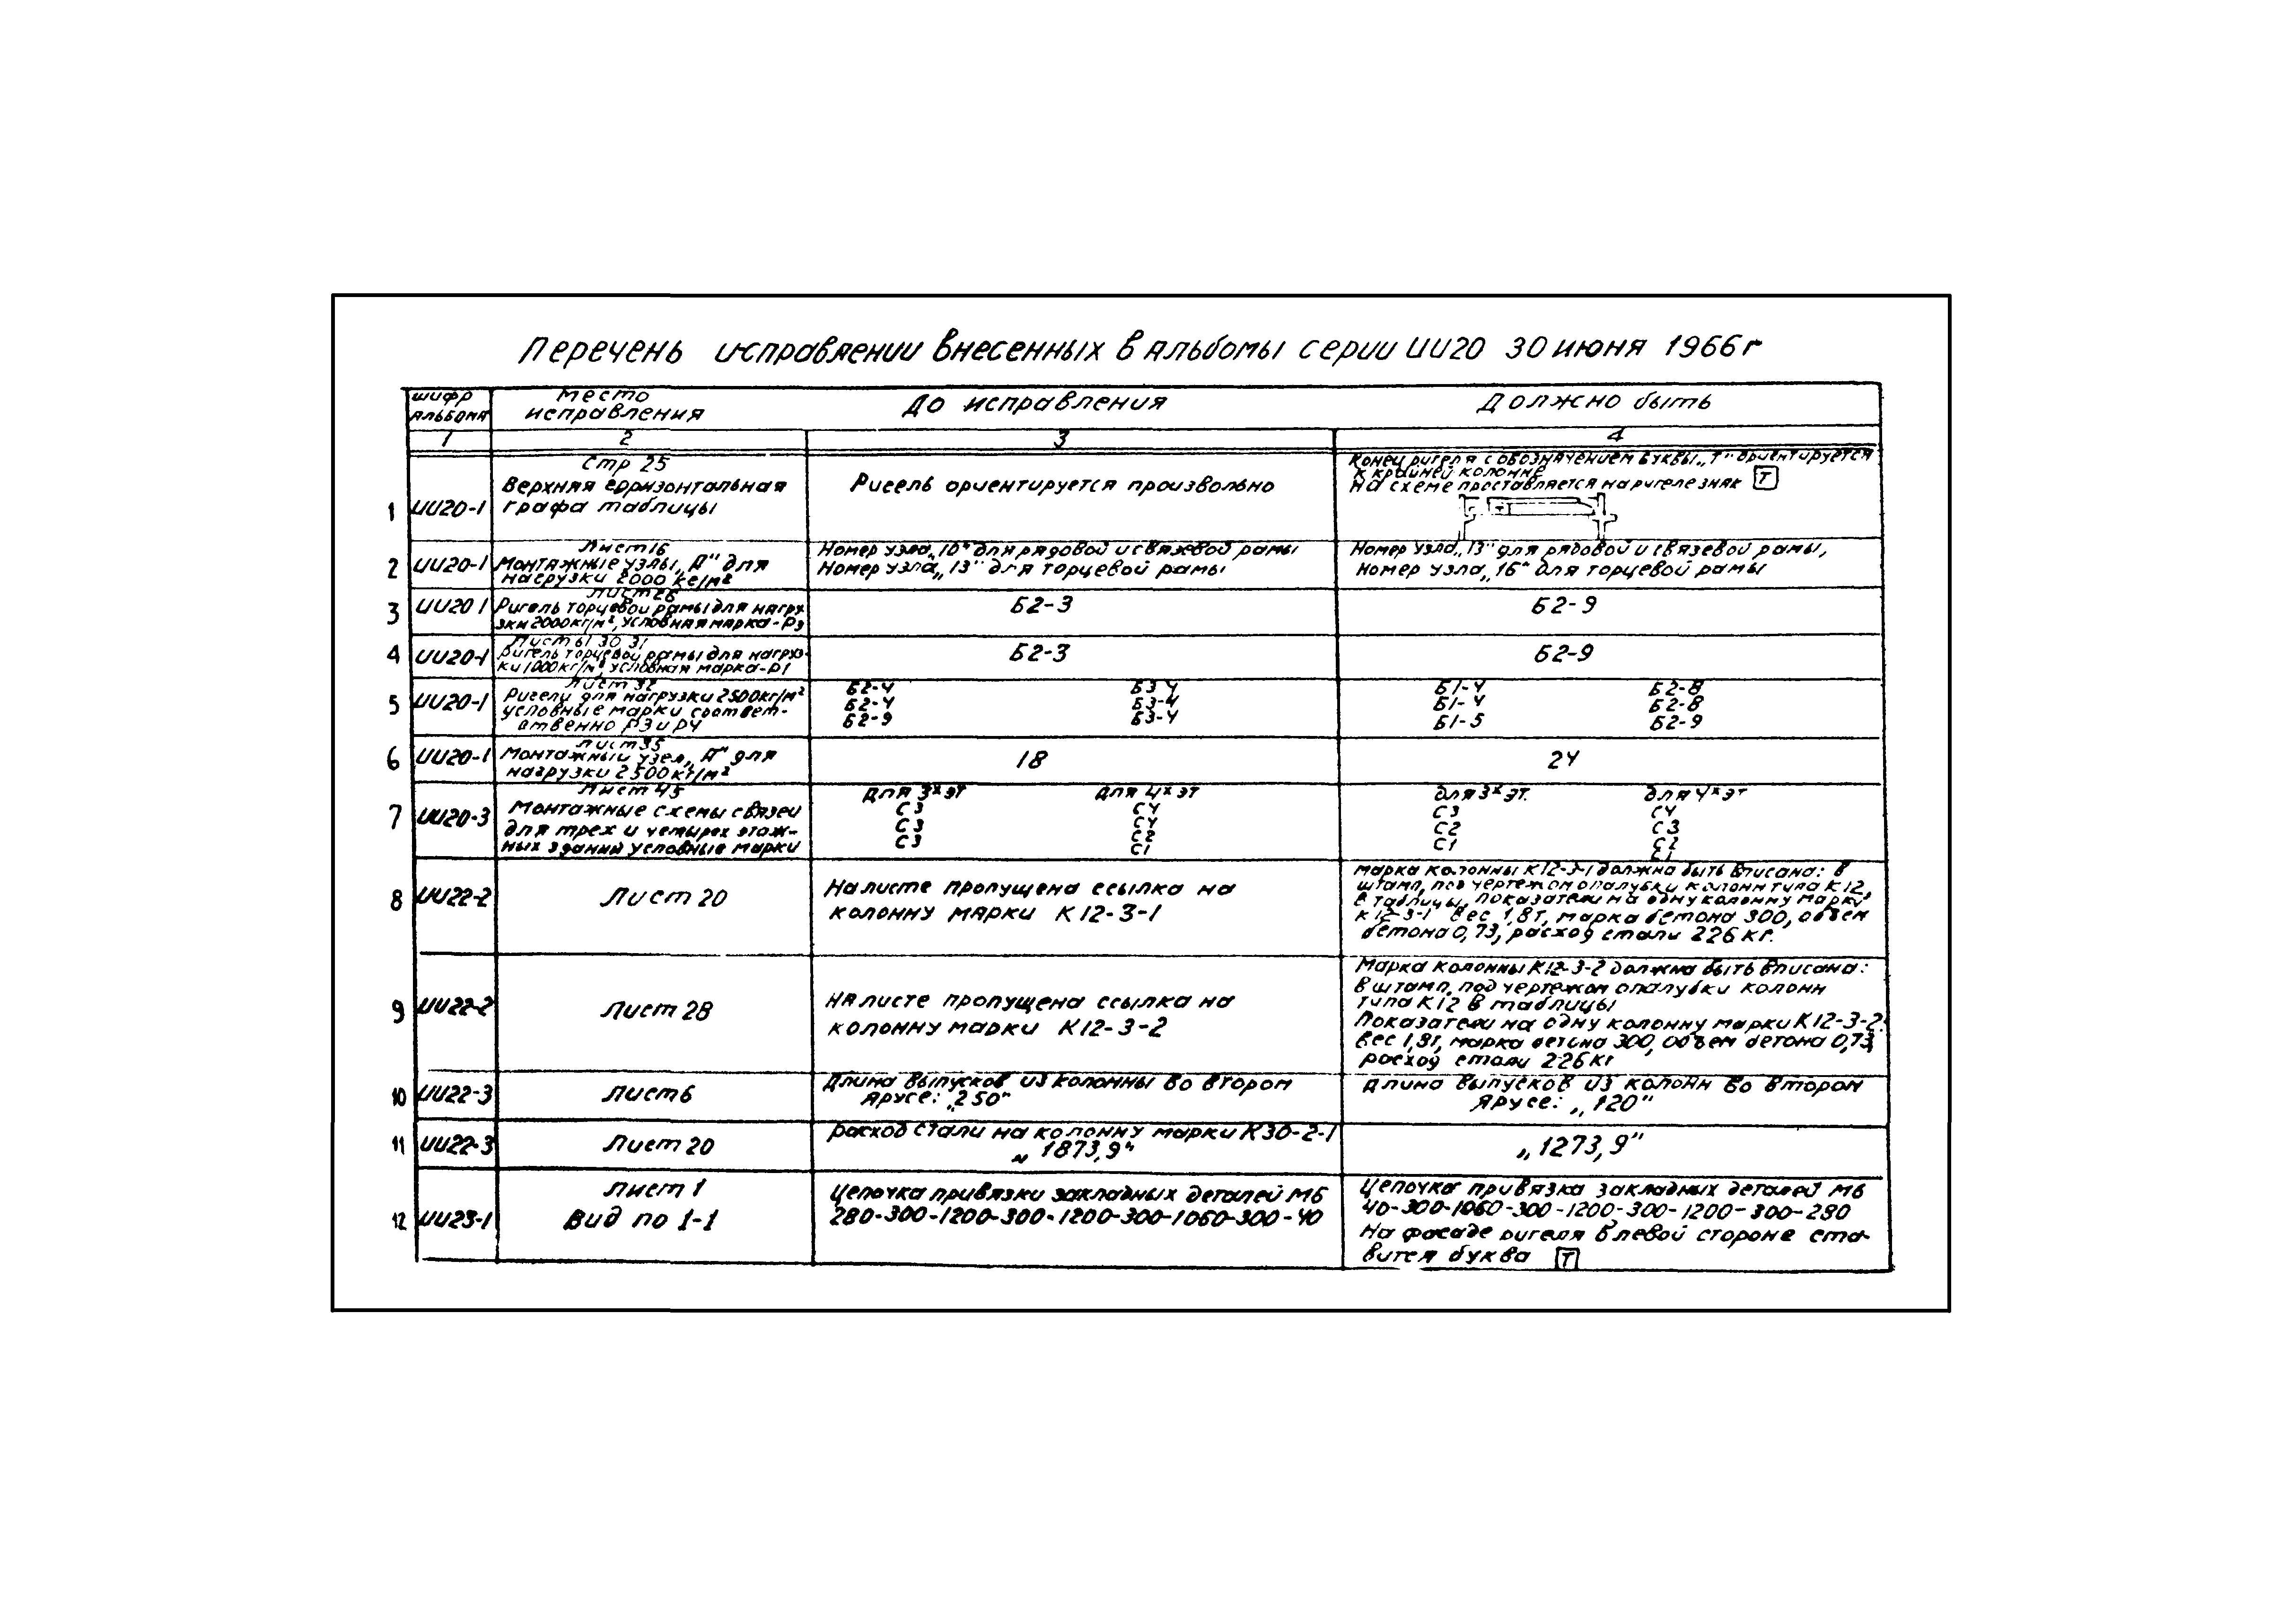 Перечень исправлении внесенных в альбомы серии ИИ20 30 июня 1966г
шифр альбома
Место исправления
До исправления
Должно быть
1 2 3 4
1 ИИ20-1
Стр 25
Верхняя горизонтальная
графа таблицы
Ригель ориентируется произвольно
Конец ригеля с обозначением буквы „Т" ориентируется
к крайней колонне
на схеме проставляется на ригеле знак Т
2 ИИ20-1
Лист 16
Монтажные узлы „А" для
нагрузки 2000 кг/м²
Номер узла „10" для рядовой и связевой рамы
Номер узла „13" для торцевой рамы
Номер узла „13" для рядовой и связевой рамы,
Номер узла „16" для торцевой рамы
3 ИИ20 1
Лист 26
Ригель торцевой рамы для нагру-
зки 2000кг/м², условная марка-Р3
Б2-3
Б2-9
4 ИИ20-1
Листы 30 31
Ригель торцевой рамы для нагруз-
ки 1000кг/м² условная марка-Р1
Б2-3
Б2-9
5 ИИ20-1
Лист 32
Ригели для нагрузки 2500кг/м²
условные марки соответ-
ственно Р3 и Р4
Б2-4 Б3 4
Б2-4 Б3-4
Б2-9 Б3-4
Б1-4 Б2-8
Б1-4 Б2-8
Б1-5 Б2-9
6 ИИ20-1
Лист 35
Монтажный узел „А" для
нагрузки 2500кг/м²
18
24
7 ИИ20-3
Лист 45
Монтажные схемы связей
для трех и четырех этаж-
ных зданий условные марки
для 3х эт для 4х эт
С3 С4
С3 С4
С3 С2
С1
для 3х эт. для 4х эт
С3 С4
С2 С3
С1 С2
С1
8 ИИ22-2
Лист 20
На листе пропущена ссылка на
колонну марки К12-3-1
Марка колонны К12-3-1 должна быть вписана: в
штамп, под чертежом опалубки колонн типа К12,
в таблицы, показатели на одну колонну марки
К12-3-1 Вес 1,8т, марка бетона 300, объем
бетона 0,73, расход стали 226 кг.
9 ИИ22-2
Лист 28
На листе пропущена ссылка на
колонну марки К12-3-2
Марка колонны К12-3-2 должна быть вписана:
в штамп, под чертежом опалубки колонн
типа К12 в таблицы
Показатели на одну колонну марки К12-3-2:
Вес 1,8т, марка бетона 300, объем бетона 0,73,
расход стали 226кг
10 ИИ22-3
Лист 6
Длина выпусков из колонны во втором
ярусе: „250"
Длина выпусков из колонн во втором
ярусе: „120"
11 ИИ22-3
Лист 20
Расход стали на колонну марки К30-2-1
„1873,9"
„1273,9"
12 ИИ23-1
Лист 1
Вид по 1-1
Цепочка привязки закладных деталей М6
280-300-1200-300-1200-300-1060-300-40
Цепочка привязка закладных деталей М6
40-300-1060-300-1200-300-1200-300-280
На фасаде ригеля в левой стороне ста-
вится буква Т